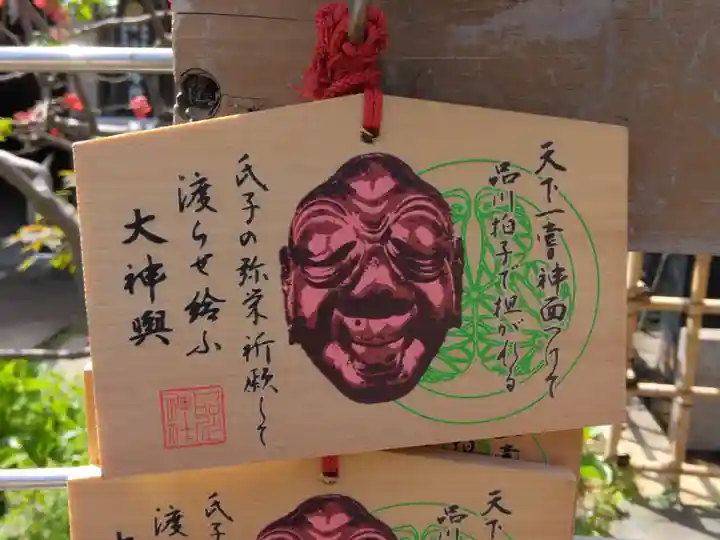 天下一嘗神面つけて
品川拍子で担がれる
氏子の弥栄祈願して
渡らせ給ふ
大神輿
天下
品川
氏子
渡